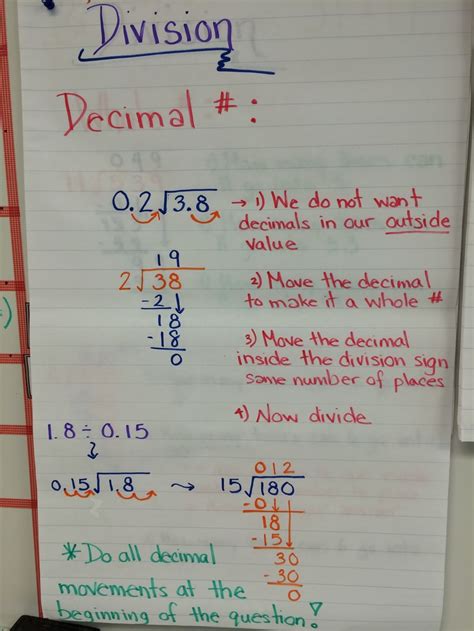 Division
Decimal #:
0.2√3.8 → 1) We do not want
decimals in our outside
value
19
2√38
-2↓
18
-18
0
2) Move the decimal
to make it a whole #
3) Move the decimal
inside the division sign
same number of places
4) Now divide
1.8 ÷ 0.15
0.15√1.8 → 15√180
012
-0↓
18
-15↓
30
-30
0
*Do all decimal
movements at the
beginning of the question!